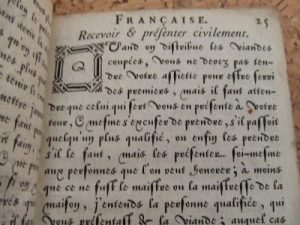 FRANÇAISE. 25
Recevoir & présenter civilement.
QUand on distribuë les viandes
coupées, vous ne devez pas ten-
dre vôtre assiette pour estre servi
des premiers, mais il faut atten-
dre que celui qui sert vous en présente à vôtre
tour, & mesme s'excuser de prendre, s'il passoit
quelqu'un plus qualifié, ou enfin les prendre
s'il le faut, mais les présenter soi-mesme
aux personnes que l'on veut honorer; à moins
que ce ne fust le maistre ou la maistresse de la
maison, j'entends la personne qualifiée, qui
vous présentast & la viande; auquel cas